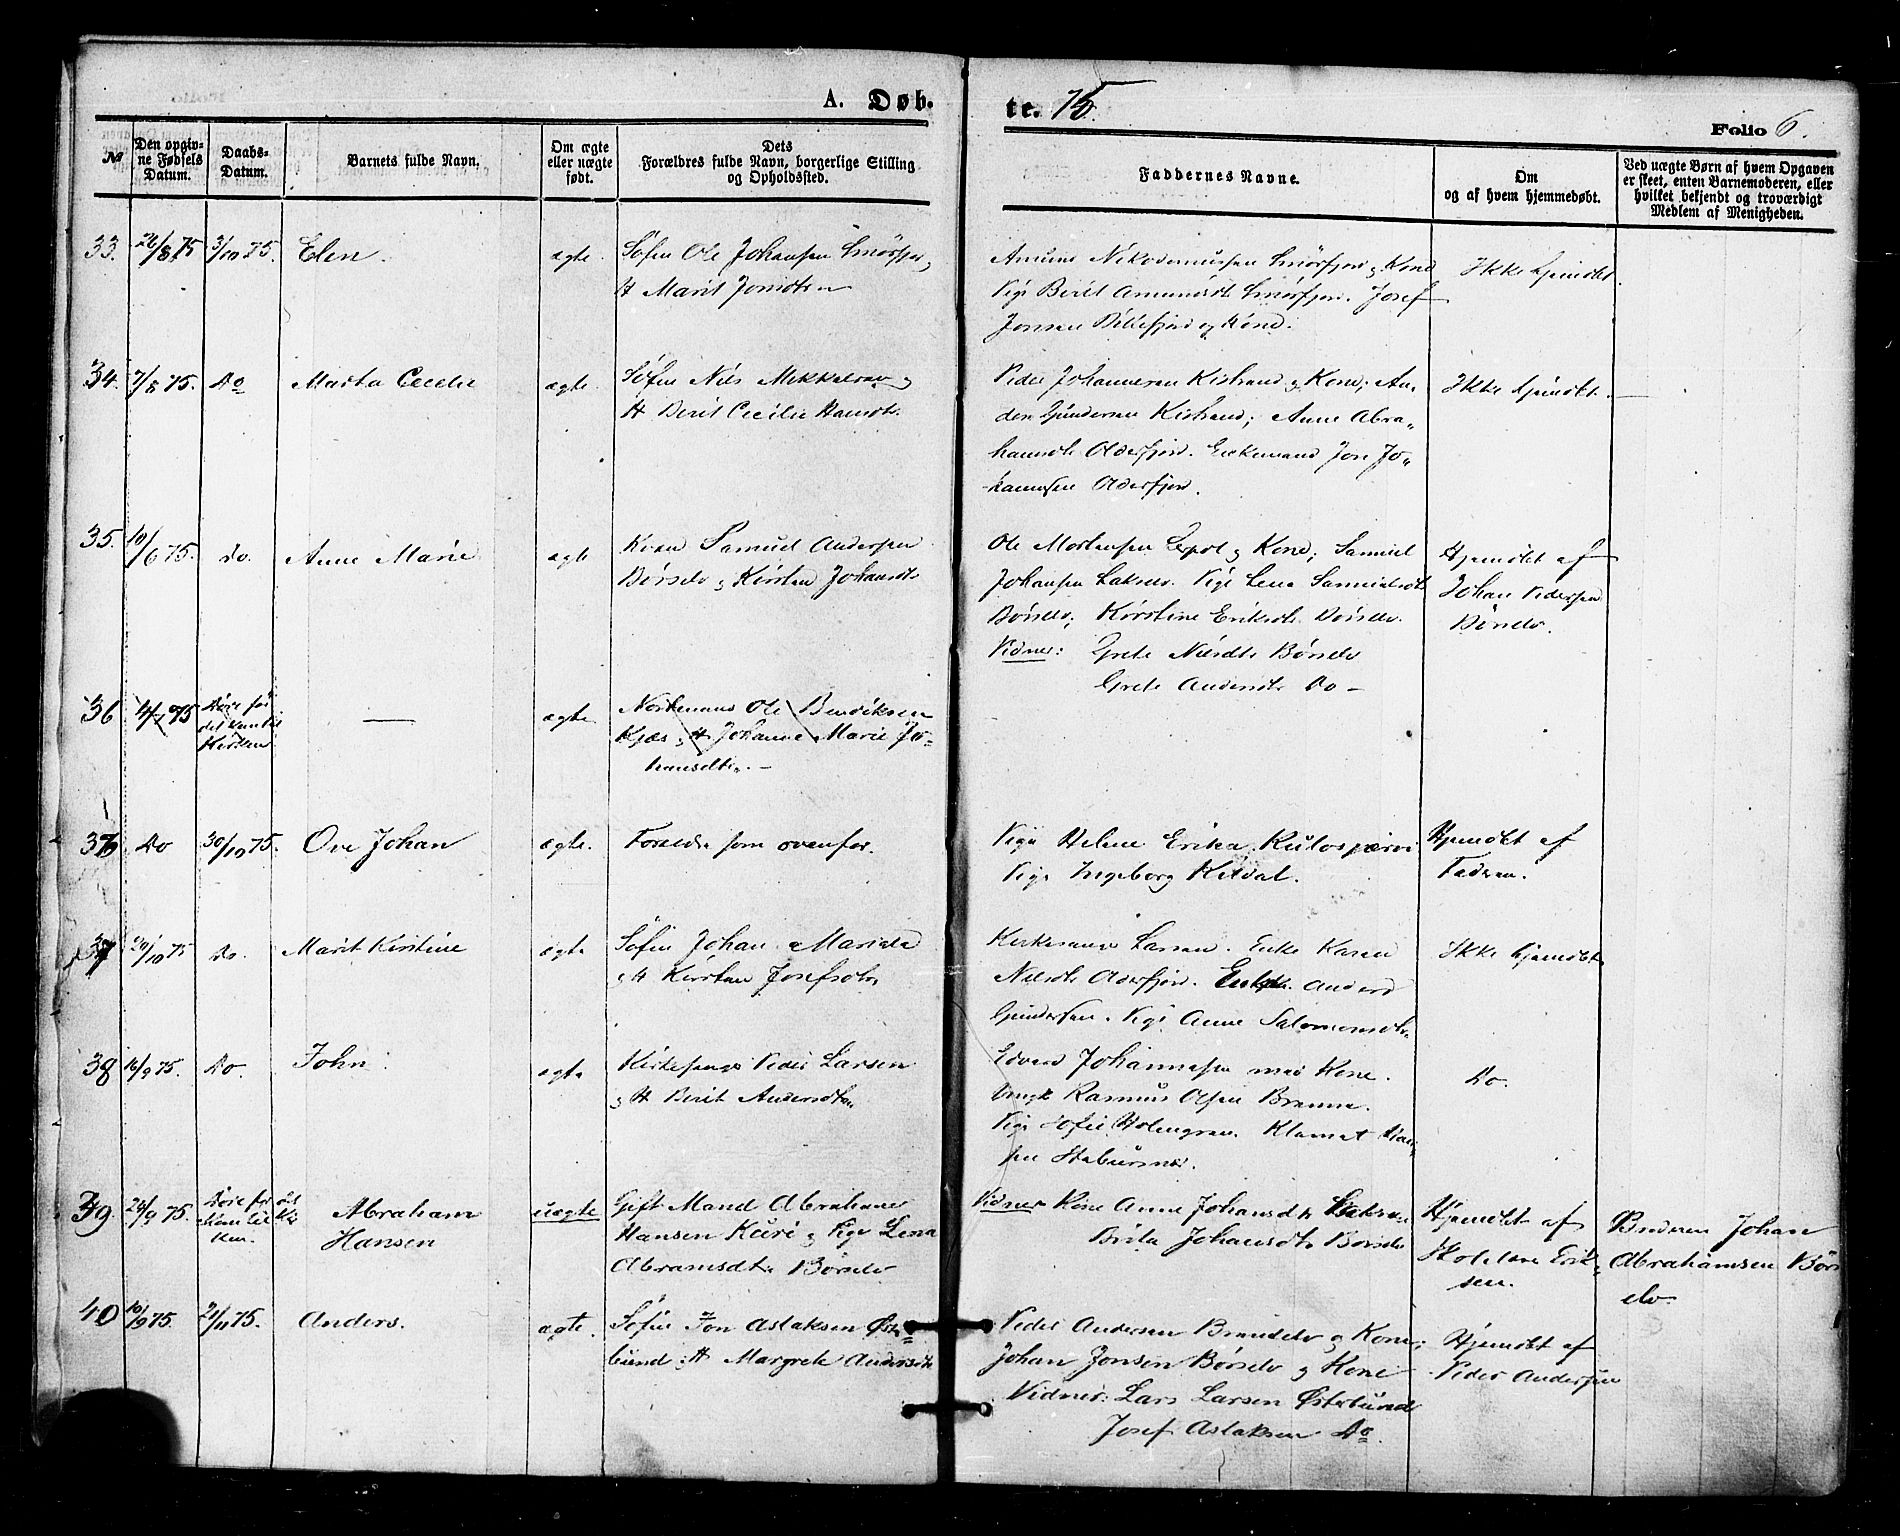 A. Døb-
te. 75.
Folio 6.
№
Den opgiv-
ne Fødsels
Datum.
Daabs-
Datum.
Barnets fulde Navn.
Om ægte
eller uægte
født.
Dets
Forældres fulde Navn, borgerlige Stilling
og Opholdssted.
Faddernes Navne.
Om
og af hvem hjemmedøbt.
Ved uægte Børn af hvem Opgaven
er skeet, enten Barnemoderen, eller
hvilket bekjendt og troværdigt
Medlem af Menigheden.
33. 26/8 75 3/10 75. Elen. ægte.
Søfin Ole Johansen Smørfjor &
H Marit Jonsdtr
Nikodemussen Smørfjord & Kone
Pige Berit Amundsdtr Smørfjord. Josef
Jonsen Billefjord og Kone.
Ikke hjemdbt.
34. 7/8 75. Do Marta Cecelie ægte.
Søfin Nils Mikkelsen &
H Berit Cecilie Hansdtr
Peder Johannesen Kistrand & Kone; An-
ders Gundersen Kistrand; Anne Abra-
hamsdtr Olderfjord. Enkemand Jon Jo-
hannesen Olderfjord.
Ikke hjemdbt.
35. 10/6 75. Do. Anne Marie ægte
Kvæn Samuel Andersen
Børselv & Kirsten Johansdtr
Ole Mortensen & Kone; Samuel
Johansen Lakselv. Pige Lena Samuelsdtr
Børselv; Kirstine Eriksdtr Børselv.
Vidner: Grete Nilsdtr Børselv
Grete Andersdtr Do -
Hjemdbt af
Johan Pedersen
Børselv.
36 4/7 75
Døde før
det kom til
Kirken
— ægte
Nordmand Ole Bendiksen
Kjæs & H Johanne Marie Jo-
hansdtr. -
37 Do 30/10 75. Ove Johan ægte.
Forældre som ovenfor.
Pige Helene Erika
Pige Ingeborg Kildal.
Hjemdbt af
Faderen.
37 29/10 75 Do. Marit Kirstine ægte
Søfin Johan
& H Kirsten Josefsdtr
Kirkesanger Larsen. Enke Karen
Nilsdtr Olderfjord. Enkem. Anders
Gundersen. Pige Anne Salomonsdtr.
Ikke hjemdbt
38 16/9 75. Do. John. ægte
Kirkesanger Peder Larsen
& H Berit Andersdtr
Edvard Johannesen med Kone.
Ungk Rasmus Olsen Brenna.
Pige Sofie Holmgren. Klemet
sen Stabursnes.
Do.
39. 24/9 75.
Døde før det
kom til Kir
ken.
Abraham
Hansen
uægte
Gift Mand Abraham
Hansen Kari & Pige Lena
Abramsdtr Børselv
Vidner Kone Anne Johansdtr
Brita Johansdtr Børselv
Hjemdbt af
Skolelærer Erik-
sen.
Broderen Johan
Abrahamsen Børs
elv.
40 10/9 75. 21/11 75. Anders. ægte.
Søfin Jon Aslaksen Øster-
bund & H Margrete Andersdtr
Peder Andersen Brendelv & Kone;
Johan Jonsen Børselv & Kone
Vidner: Lars Larsen Østerbund
Josef Aslaksen Do.
Hjemdbt af
Peder Andersen